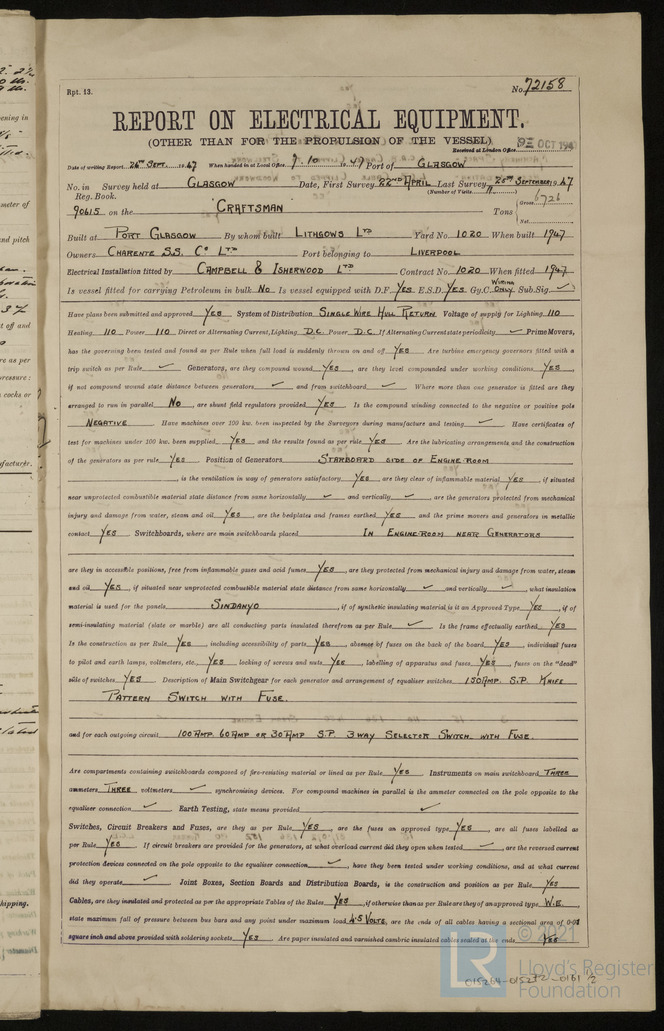 Rpt. 13. No. 72158
REPORT ON ELECTRICAL EQUIPMENT.
(OTHER THAN FOR THE PROPULSION OF THE VESSEL)
Received at London Office OCT 194
Date of writing Report 26TH SEPT. 1947 When handed in at Local Office 7.10.1947 Port of GLASGOW
No. in Survey held at GLASGOW Date, First Survey 22ND APRIL Last Survey 25TH SEPTEMBER 1947
Reg. Book. (Number of Visits
90615 on the "CRAFTSMAN" Tons Gross 6726
Net
Built at PORT GLASGOW By whom built LITHGOWS LTD Yard No. 1020 When built 1947
Owners CHARENTE S.S. CO LTD Port belonging to LIVERPOOL
Electrical Installation fitted by CAMPBELL & ISHERWOOD LTD Contract No. 1020 When fitted 1947
Is vessel fitted for carrying Petroleum in bulk NO Is vessel equipped with D.F. YES E.S.D. YES Gy.C. WIRING ONLY Sub.Sig. ✓
Have plans been submitted and approved YES System of Distribution SINGLE WIRE HULL RETURN Voltage of supply for Lighting 110
Heating 110 Power 110 Direct or Alternating Current, Lighting D.C. Power D.C. If Alternating Current state periodicity ✓ Prime Movers,
has the governing been tested and found as per Rule when full load is suddenly thrown on and off YES Are turbine emergency governors fitted with a
trip switch as per Rule ✓ Generators, are they compound wound YES, are they level compounded under working conditions YES,
if not compound wound state distance between generators ✓ and from switchboard ✓ Where more than one generator is fitted are they
arranged to run in parallel NO, are shunt field regulators provided YES Is the compound winding connected to the negative or positive pole
NEGATIVE Have machines over 100 kw. been inspected by the Surveyors during manufacture and testing ✓ Have certificates of
test for machines under 100 kw. been supplied YES and the results found as per rule YES Are the lubricating arrangements and the construction
of the generators as per rule YES Position of Generators STARBOARD SIDE OF ENGINE ROOM
, is the ventilation in way of generators satisfactory YES, are they clear of inflammable material YES, if situated
near unprotected combustible material state distance from same horizontally ✓ and vertically ✓, are the generators protected from mechanical
injury and damage from water, steam and oil YES, are the bedplates and frames earthed YES and the prime movers and generators in metallic
contact YES Switchboards, where are main switchboards placed IN ENGINE ROOM NEAR GENERATORS
are they in accessible positions, free from inflammable gases and acid fumes YES, are they protected from mechanical injury and damage from water, steam
and oil YES, if situated near unprotected combustible material state distance from same horizontally ✓ and vertically ✓, what insulation
material is used for the panels SINDANYO, if of synthetic insulating material is it an Approved Type YES, if of
semi-insulating material (slate or marble) are all conducting parts insulated therefrom as per Rule ✓ Is the frame effectually earthed YES
Is the construction as per Rule YES, including accessibility of parts YES, absence of fuses on the back of the board YES, individual fuses
to pilot and earth lamps, voltmeters, etc. YES locking of screws and nuts YES, labelling of apparatus and fuses YES, fuses on the "dead"
side of switches YES Description of Main Switchgear for each generator and arrangement of equaliser switches 150 AMP. S.P. KNIFE
PATTERN SWITCH WITH FUSE.
and for each outgoing circuit 100 AMP 60 AMP OR 30 AMP S.P. 3 WAY SELECTOR SWITCH WITH FUSE.
Are compartments containing switchboards composed of fire-resisting material or lined as per Rule YES Instruments on main switchboard THREE
ammeters THREE voltmeters ✓ synchronising devices. For compound machines in parallel is the ammeter connected on the pole opposite to the
equaliser connection ✓ Earth Testing, state means provided ✓
Switches, Circuit Breakers and Fuses, are they as per Rule YES, are the fuses an approved type YES, are all fuses labelled as
per Rule YES If circuit breakers are provided for the generators, at what overload current did they open when tested ✓, are the reversed current
protection devices connected on the pole opposite to the equaliser connection ✓, have they been tested under working conditions, and at what current
did they operate ✓ Joint Boxes, Section Boards and Distribution Boards, is the construction and position as per Rule YES
Cables, are they insulated and protected as per the appropriate Tables of the Rules YES, if otherwise than as per Rule are they of an approved type W.E.
state maximum fall of pressure between bus bars and any point under maximum load 4.5 VOLTS, are the ends of all cables having a sectional area of 0·01
square inch and above provided with soldering sockets YES Are paper insulated and varnished cambric insulated cables sealed at the ends YES
© 2021
LR Lloyd's Register
Foundation